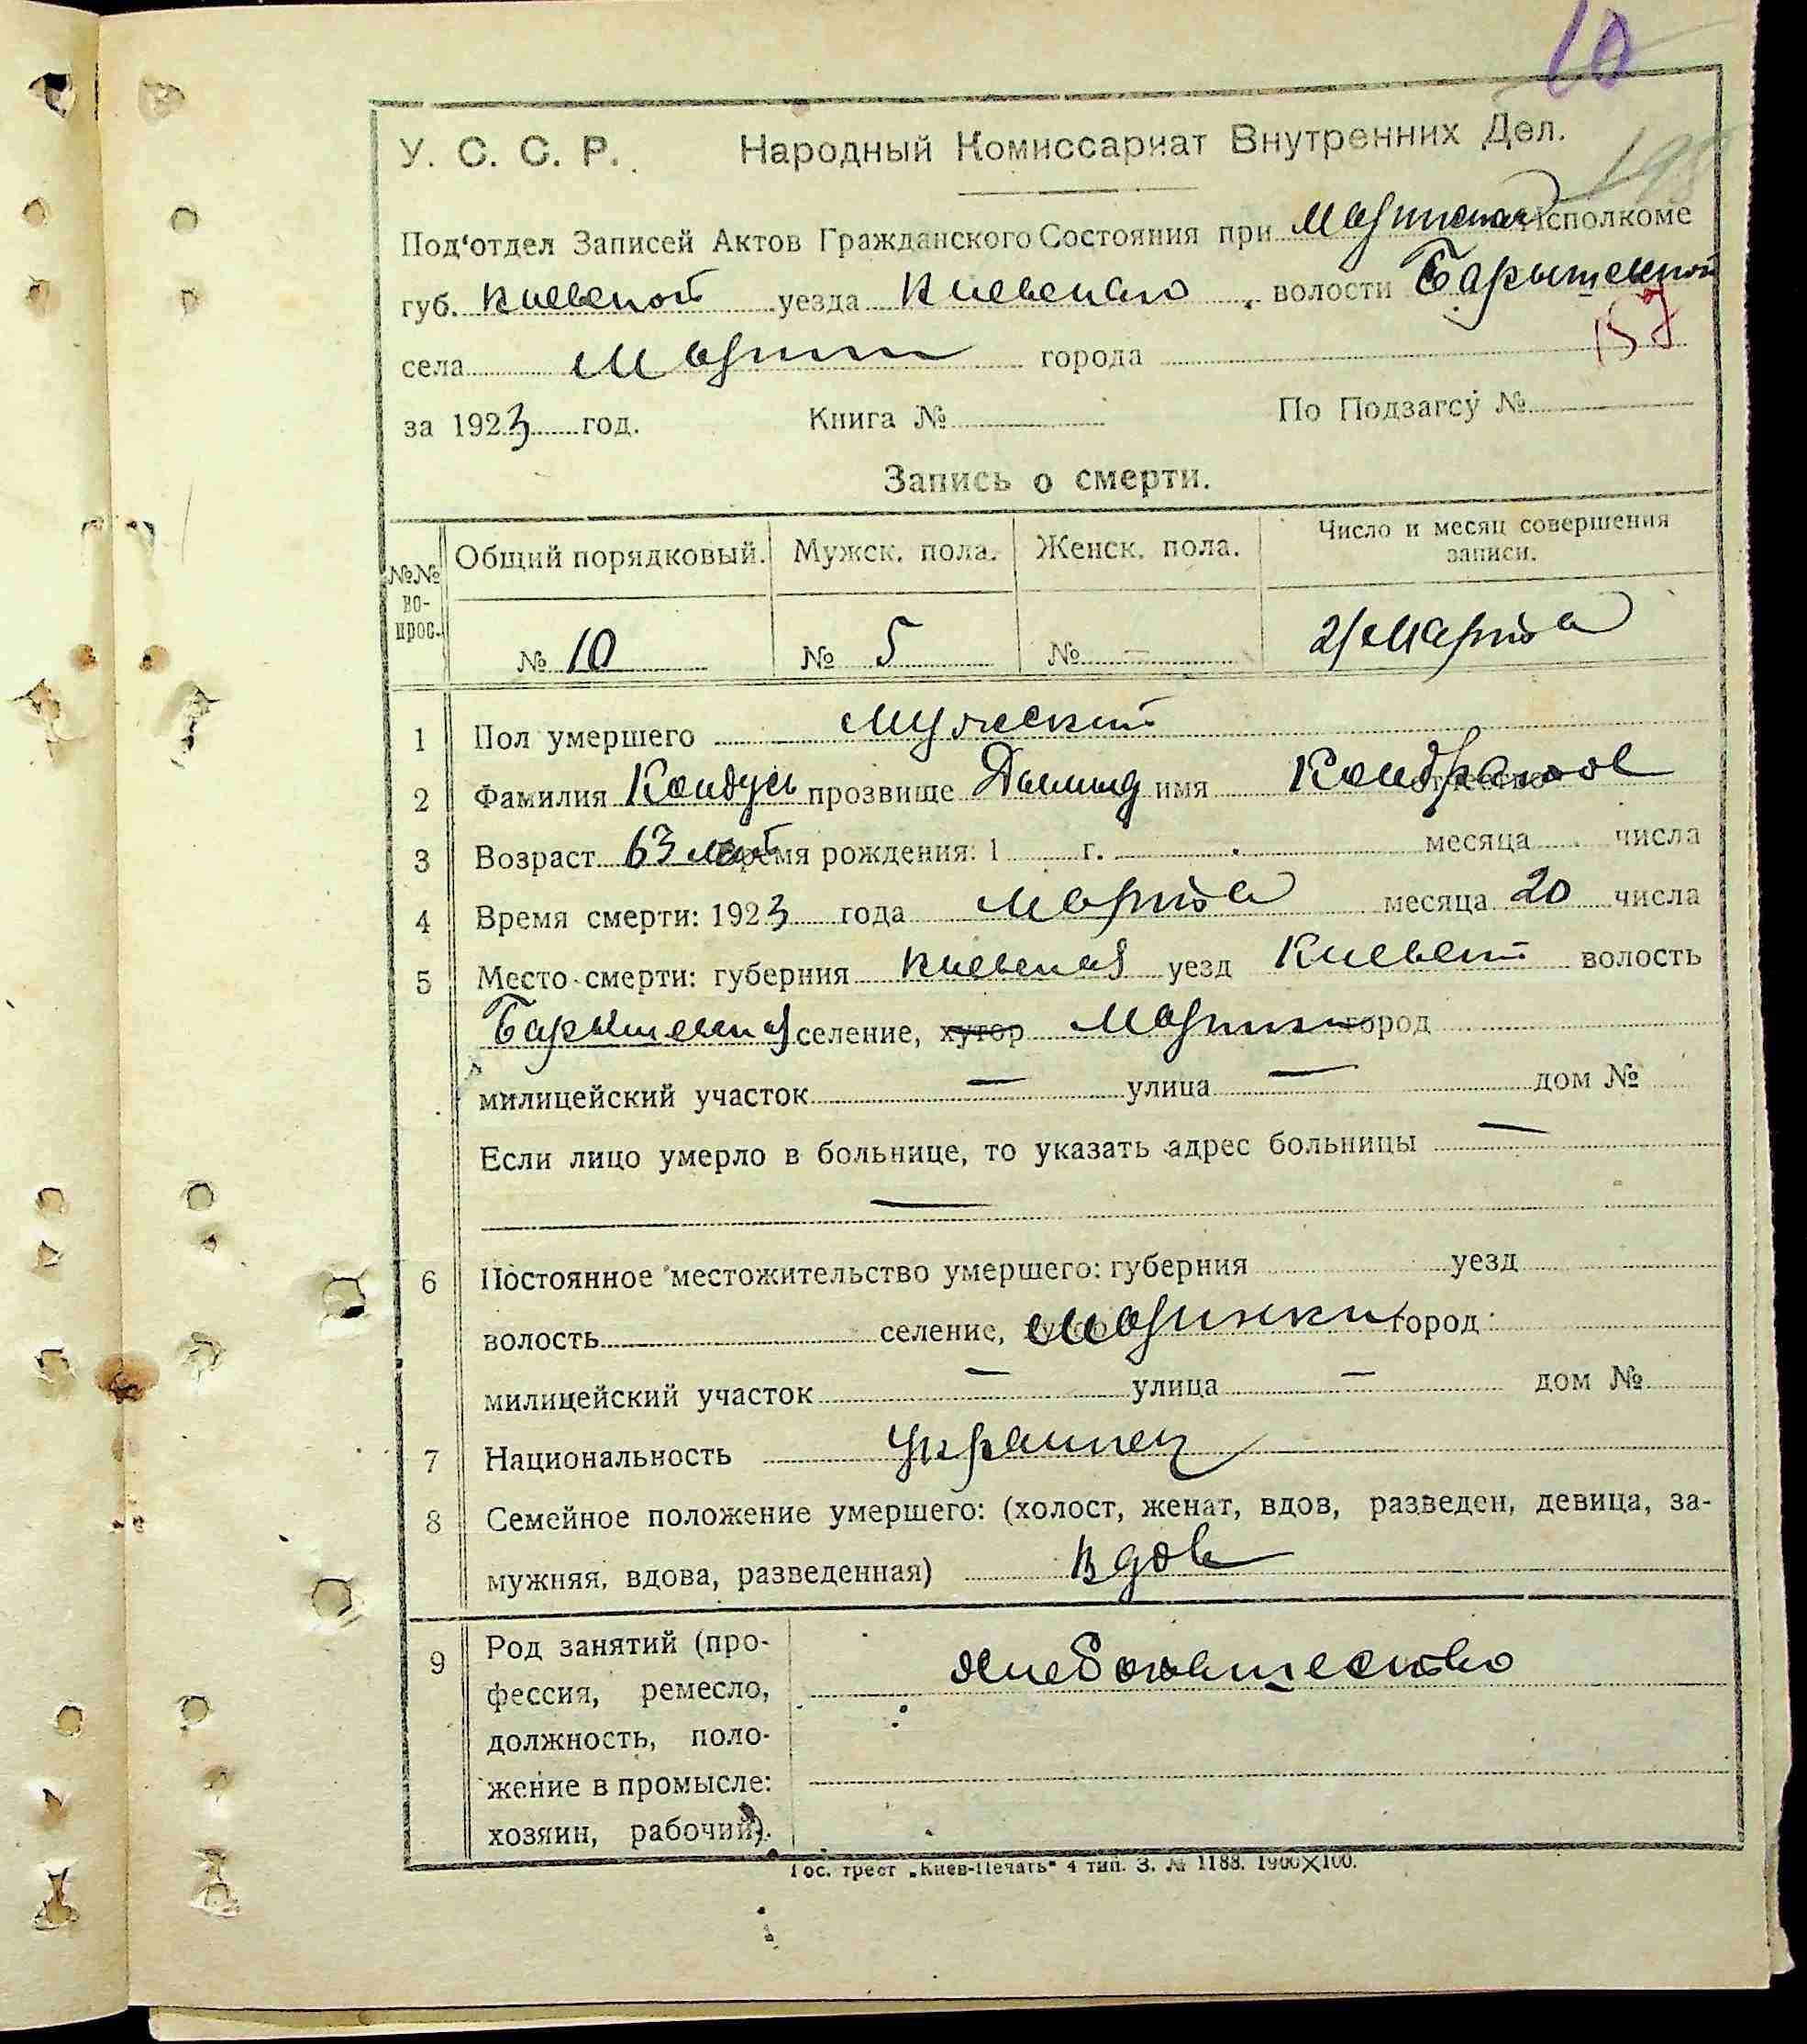 10
У. С. С. Р. Народный Комиссариат Внутренних Дел.
198
Под'отдел Записей Актов Гражданского Состояния при Исполкоме
губ. Киевской уезда Киевского волости Барышевской
157
села города
за 1923 год. Книга № По Подзагсу №
Запись о смерти.
№№ во-прос. Общий порядковый. Мужск. пола. Женск. пола. Число и месяц совершения записи.
№ 10 № 5 № — 21 марта
1 Пол умершего мужеский
2 Фамилия Кондусь прозвище Демид имя Кондратов отчество
3 Возраст 63 лет Время рождения: 1 г. месяца числа
4 Время смерти: 1923 года марта месяца 20 числа
5 Место смерти: губерния Киевская уезд Киевский волость
Барышевская селение, хутор город
милицейский участок — улица — дом №
Если лицо умерло в больнице, то указать адрес больницы —
—
6 Постоянное местожительство умершего: губерния уезд
волость селение, город
милицейский участок — улица — дом №
7 Национальность украинец
8 Семейное положение умершего: (холост, женат, вдов, разведен, девица, за-
мужняя, вдова, разведенная) вдов
9 Род занятий (про-
фессия, ремесло, хлебопашество
должность, поло-
жение в промысле:
хозяин, рабочий).
Гос. трест „Киев-Печать" 4 тип. З. № 1188. 1900×100.